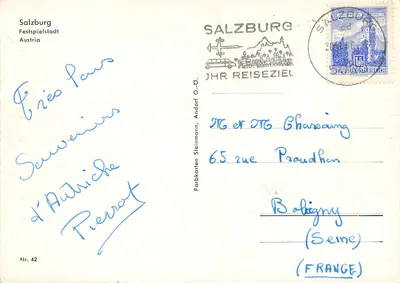 Salzburg
Festspielstadt
Austria
SALZBURG
IHR REISEZIEL
SALZBURG
Très bons
Souvenirs
d'Autriche
Pierrot
Farbkarten Steinmann, Andorf O.-Ö.
M et M Chassaing
65 rue Proudhon
Bobigny
(Seine)
(FRANCE)
Nr. 42